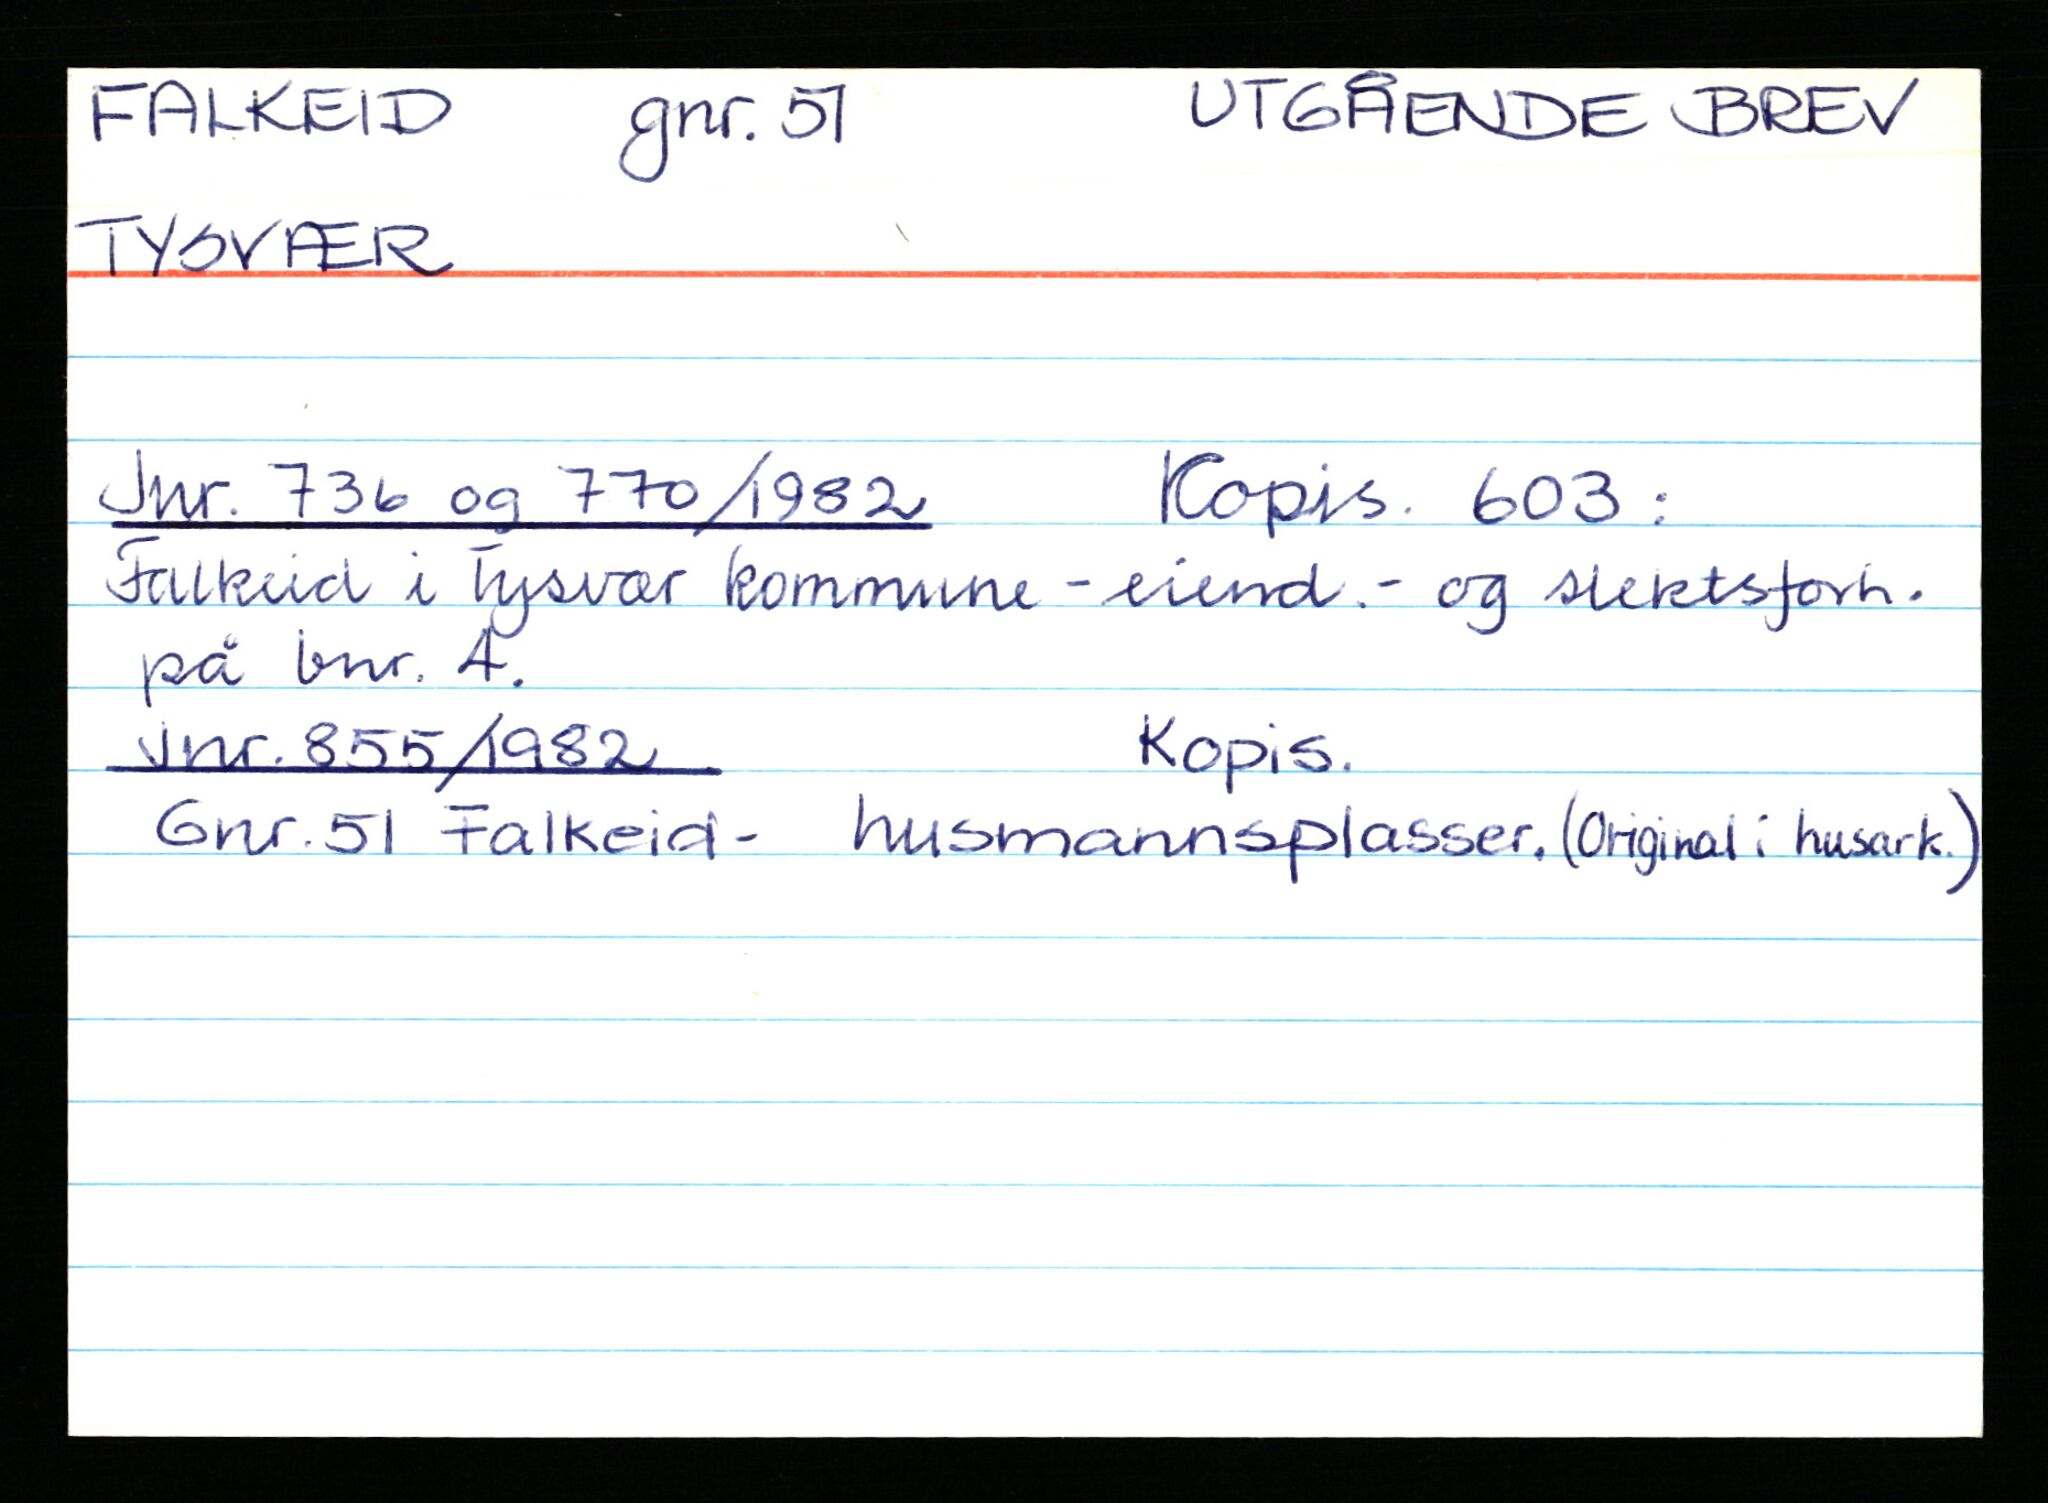 FALKEID gnr. 51 UTGÅENDE BREV
TYSVÆR
Jnr. 736 og 770/1982 Kopis. 603:
Falkeid i Tysvær kommune - eiend.- og slektsforh.
på bnr. 4.
Jnr. 855/1982 Kopis.
Gnr. 51 Falkeid - husmannsplasser. (Original i husark.)